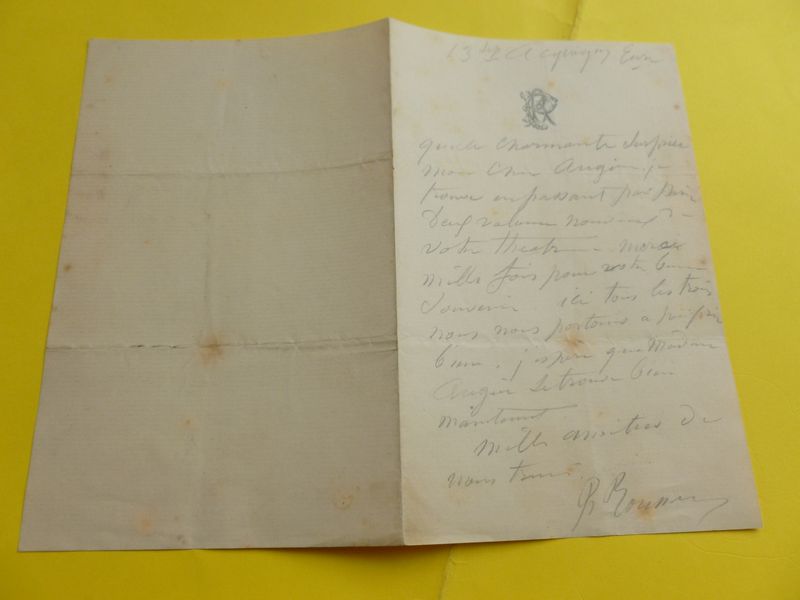 13 7bre Acquigny Eure
PR
quelle charmante surprise
mon cher Augier, je
trouve en passant par Paris
deux volumes nouveaux de
votre theatre merci
mille fois pour votre bon
souvenir. ici tous les trois
nous nous portons a peu près
bien, j'espere que Madame
Augier se trouve bien
maintenant
mille amities de
nous tous.
Ph Rousseau